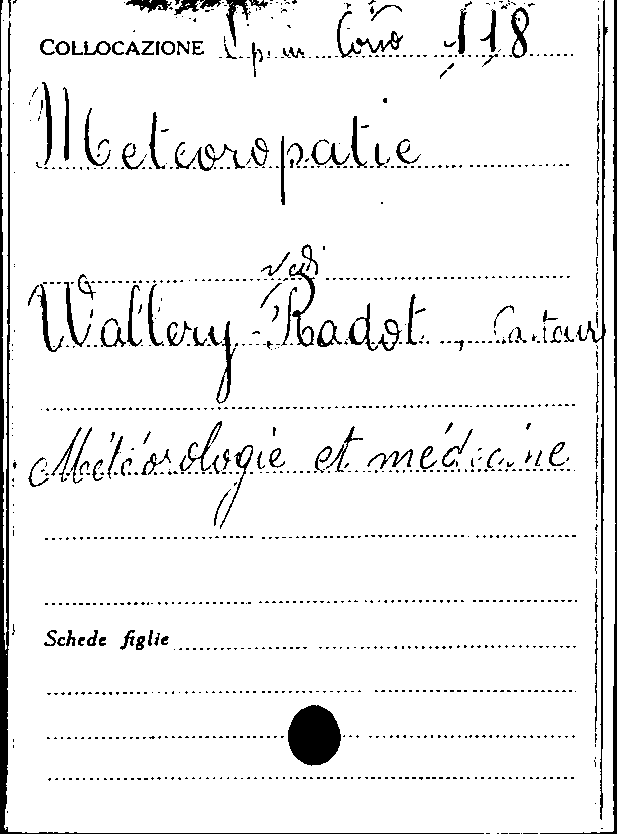 COLLOCAZIONE Sp. in Corso 118
Meteoropatie
vedi
Wallery-Radot,
Météorologie et médecine
Schede figlie